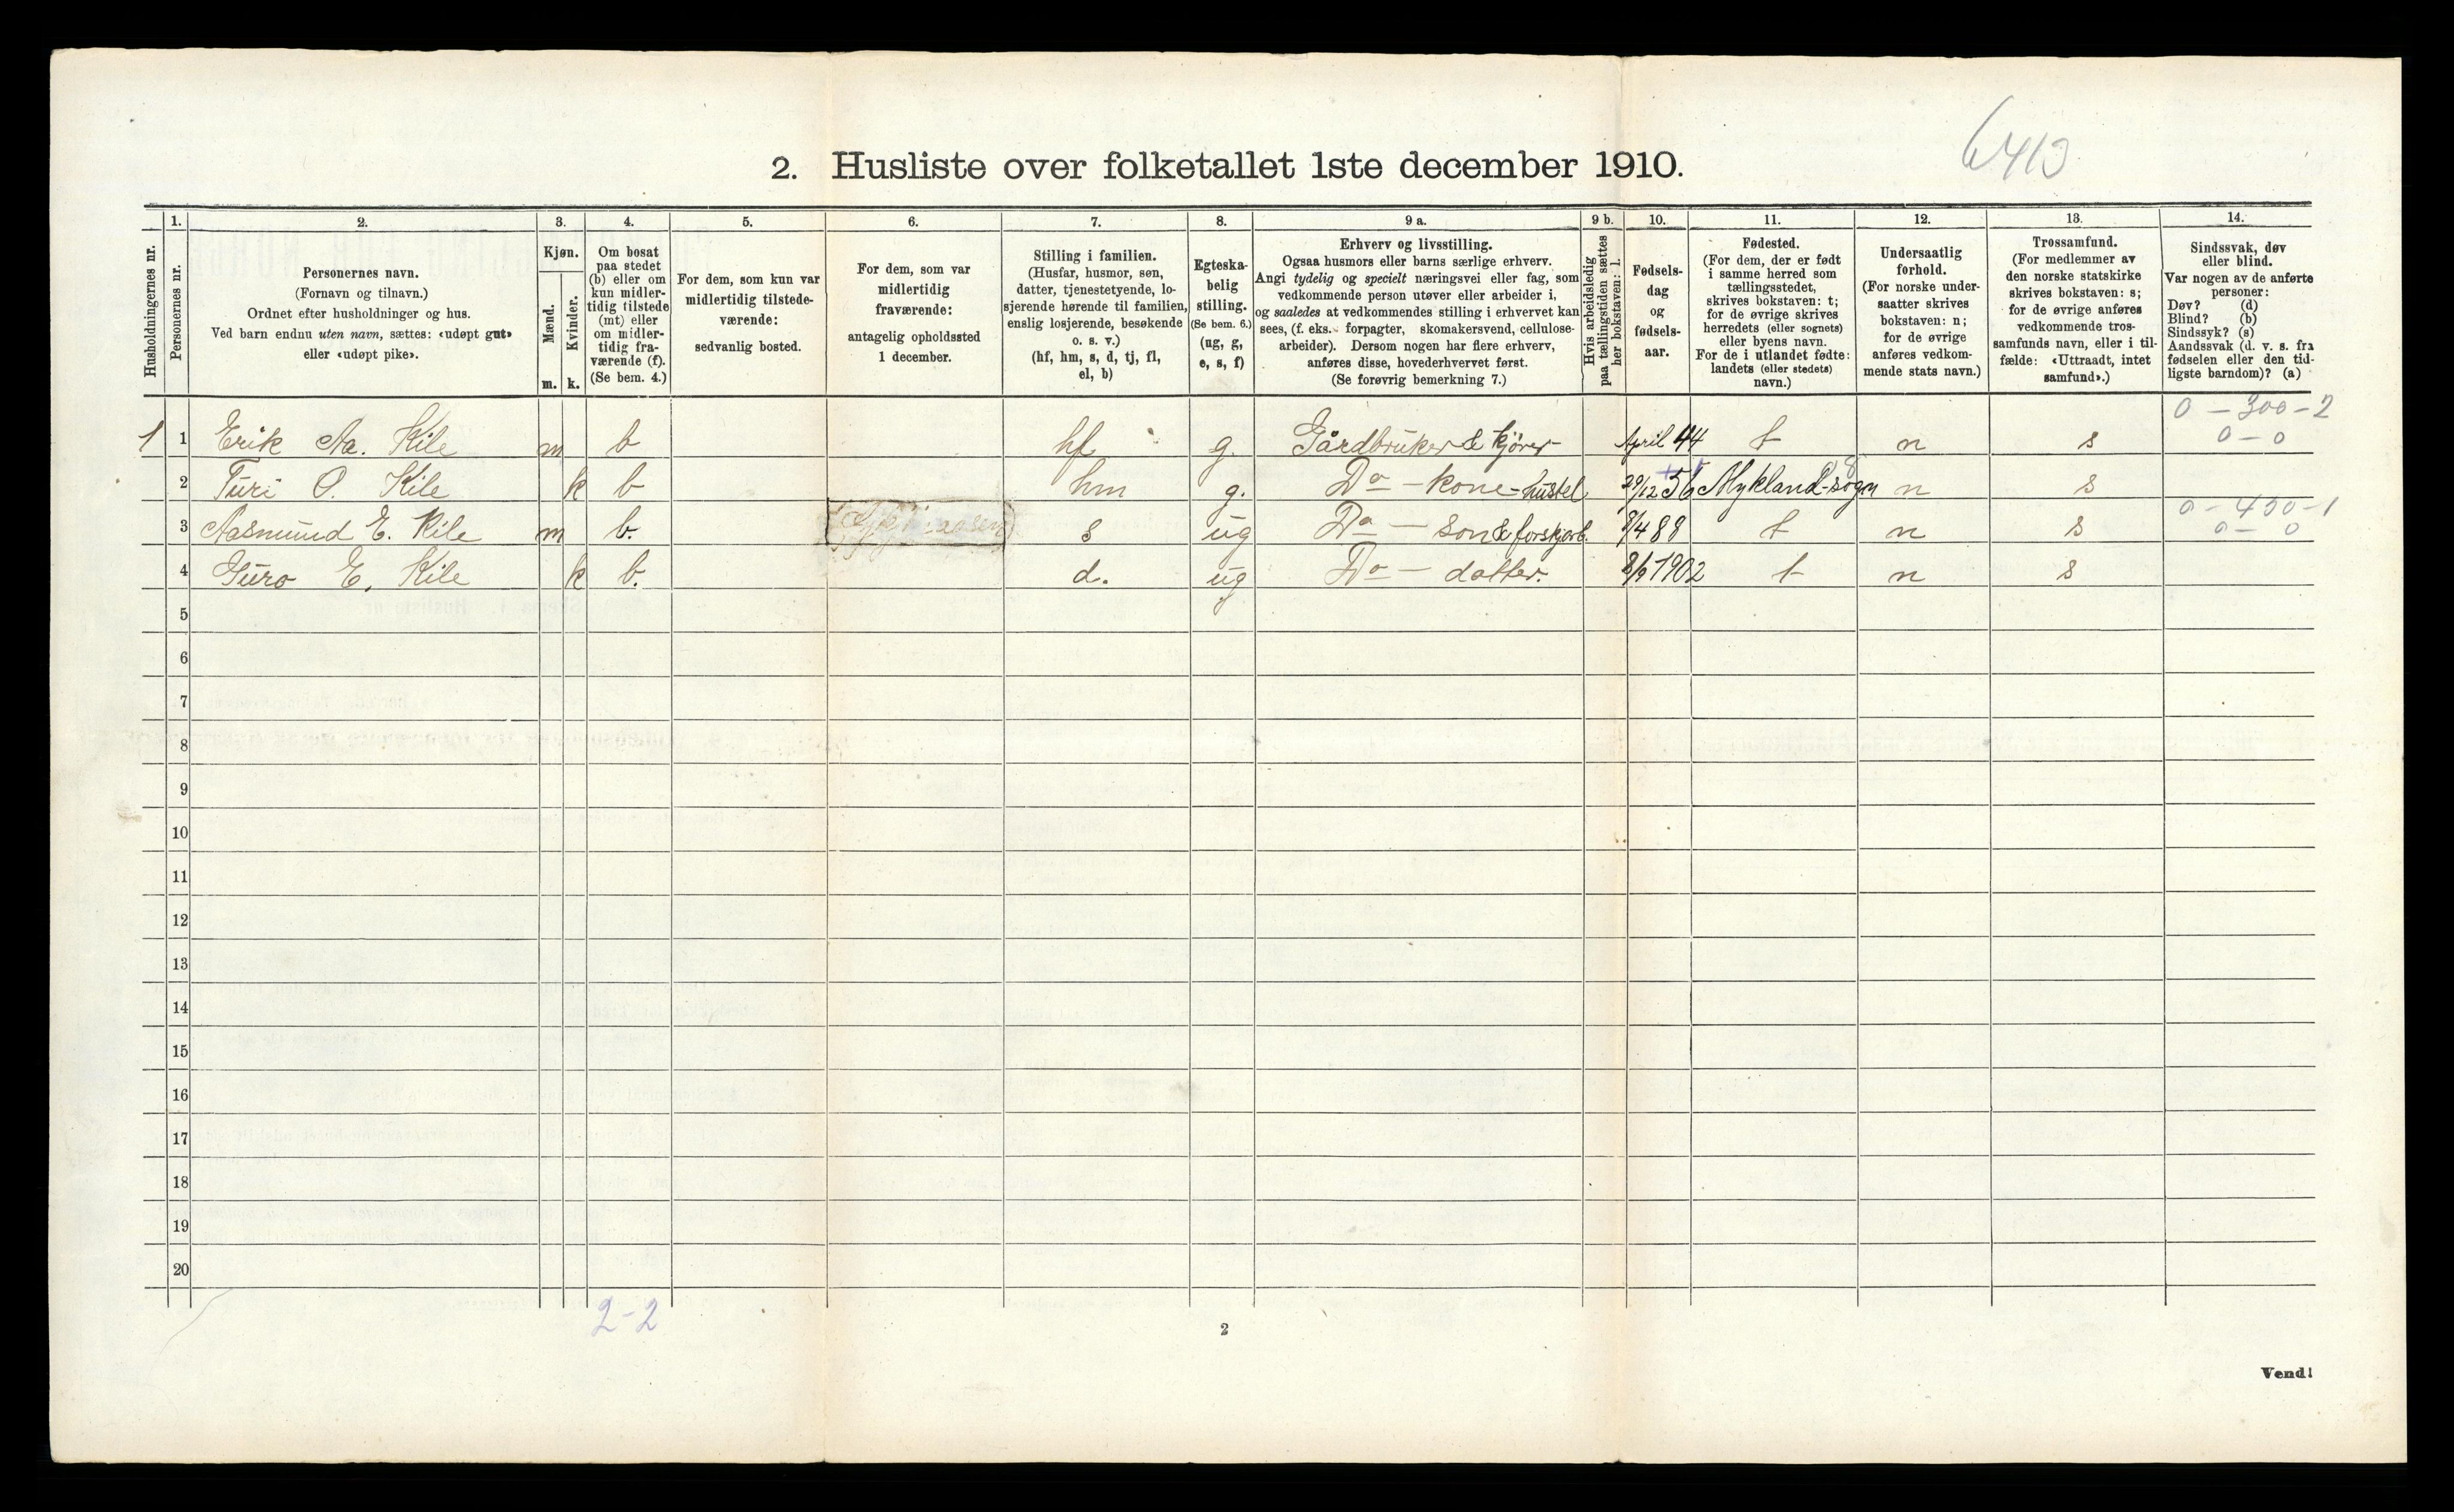 6413
2. Husliste over folketallet 1ste december 1910.
Husholdningernes nr.
1.
Personernes nr.
2.
Personernes navn.
(Fornavn og tilnavn.)
Ordnet efter husholdninger og hus.
Ved barn endnu uten navn, sættes: «udøpt gut»
eller «udøpt pike».
3.
Kjøn.
Mænd.
m.
Kvinder.
k.
4.
Om bosat
paa stedet
(b) eller om
kun midler-
tidig tilstede
(mt) eller
om midler-
tidig fra-
værende (f).
(Se bem. 4.)
5.
For dem, som kun var
midlertidig tilstede-
værende:
sedvanlig bosted.
6.
For dem, som var
midlertidig
fraværende:
antagelig opholdssted
1 december.
7.
Stilling i familien.
(Husfar, husmor, søn,
datter, tjenestetyende, lo-
sjerende hørende til familien,
enslig losjerende, besøkende
o. s. v.)
(hf, hm, s, d, tj, fl,
el, b)
8.
Egteska-
belig
stilling.
(Se bem. 6.)
(ug, g,
e, s, f)
9 a.
Erhverv og livsstilling.
Ogsaa husmors eller barns særlige erhverv.
Angi tydelig og specielt næringsvei eller fag, som
vedkommende person utøver eller arbeider i,
og saaledes at vedkommendes stilling i erhvervet kan
sees, (f. eks. forpagter, skomakersvend, cellulose-
arbeider). Dersom nogen har flere erhverv,
anføres disse, hovederhvervet først.
(Se forøvrig bemerkning 7.)
9 b.
Hvis arbeidsledig
paa tællingstiden sættes
her bokstaven: l.
10.
Fødsels-
dag
og
fødsels-
aar.
11.
Fødested.
(For dem, der er født
i samme herred som
tællingsstedet,
skrives bokstaven: t;
for de øvrige skrives
herredets (eller sognets)
eller byens navn.
For de i utlandet fødte:
landets (eller stedets)
navn.)
12.
Undersaatlig
forhold.
(For norske under-
saatter skrives
bokstaven: n;
for de øvrige
anføres vedkom-
mende stats navn.)
13.
Trossamfund.
(For medlemmer av
den norske statskirke
skrives bokstaven: s;
for de øvrige anføres
vedkommende tros-
samfunds navn, eller i til-
fælde: «Uttraadt, intet
samfund».)
14.
Sindssvak, døv
eller blind.
Var nogen av de anførte
personer:
Døv? (d)
Blind? (b)
Sindssyk? (s)
Aandssvak (d. v. s. fra
fødselen eller den tid-
ligste barndom)? (a)
0 - 300 - 2
1 1 Erik Aa. Kile m b hf g. Gårdbruker & kjörer April 44 t n s 0 - 0
2 Turi O. Kile k b hm g. Do - kone - hustel 29/12 56 Mykland-sogn n s
0 - 400 - 1
3 Aasmund E. Kile m b. s ug Do - son & forskjarb. 9/4 88 t n s 0 - 0
4 Guro E. Kile k b. d. ug Do - datter. 8/9 1902 t n s
5
6
7
8
9
10
11
12
13
14
15
16
17
18
19
20
2-2
2
Vend!